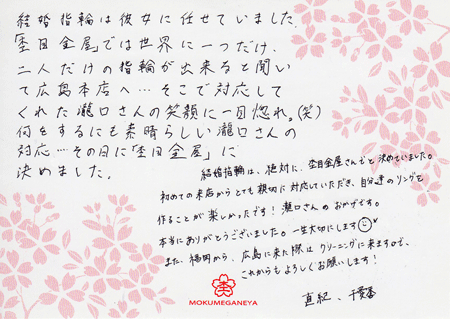 結婚指輪は彼女に任せていました。
「杢目金屋」では世界に一つだけ、
二人だけの指輪が出来ると聞い
て広島本店へ…そこで対応して
くれた瀧口さんの笑顔に一目惚れ。(笑)
何をするにも素晴らしい瀧口さんの
対応…その日に「杢目金屋」に
決めました。
結婚指輪は、絶対に、杢目金屋さんでと決めていました。
初めての来店からとても親切に対応していただき、自分達のリングを
作ることが楽しかったです！瀧口さんのおかげです。
本当にありがとうございました。一生大切にします
また、福岡から、広島に来た際はクリーニングに来ますので、
これからもよろしくお願いします！
直紀、千
MOKUMEGANEYA